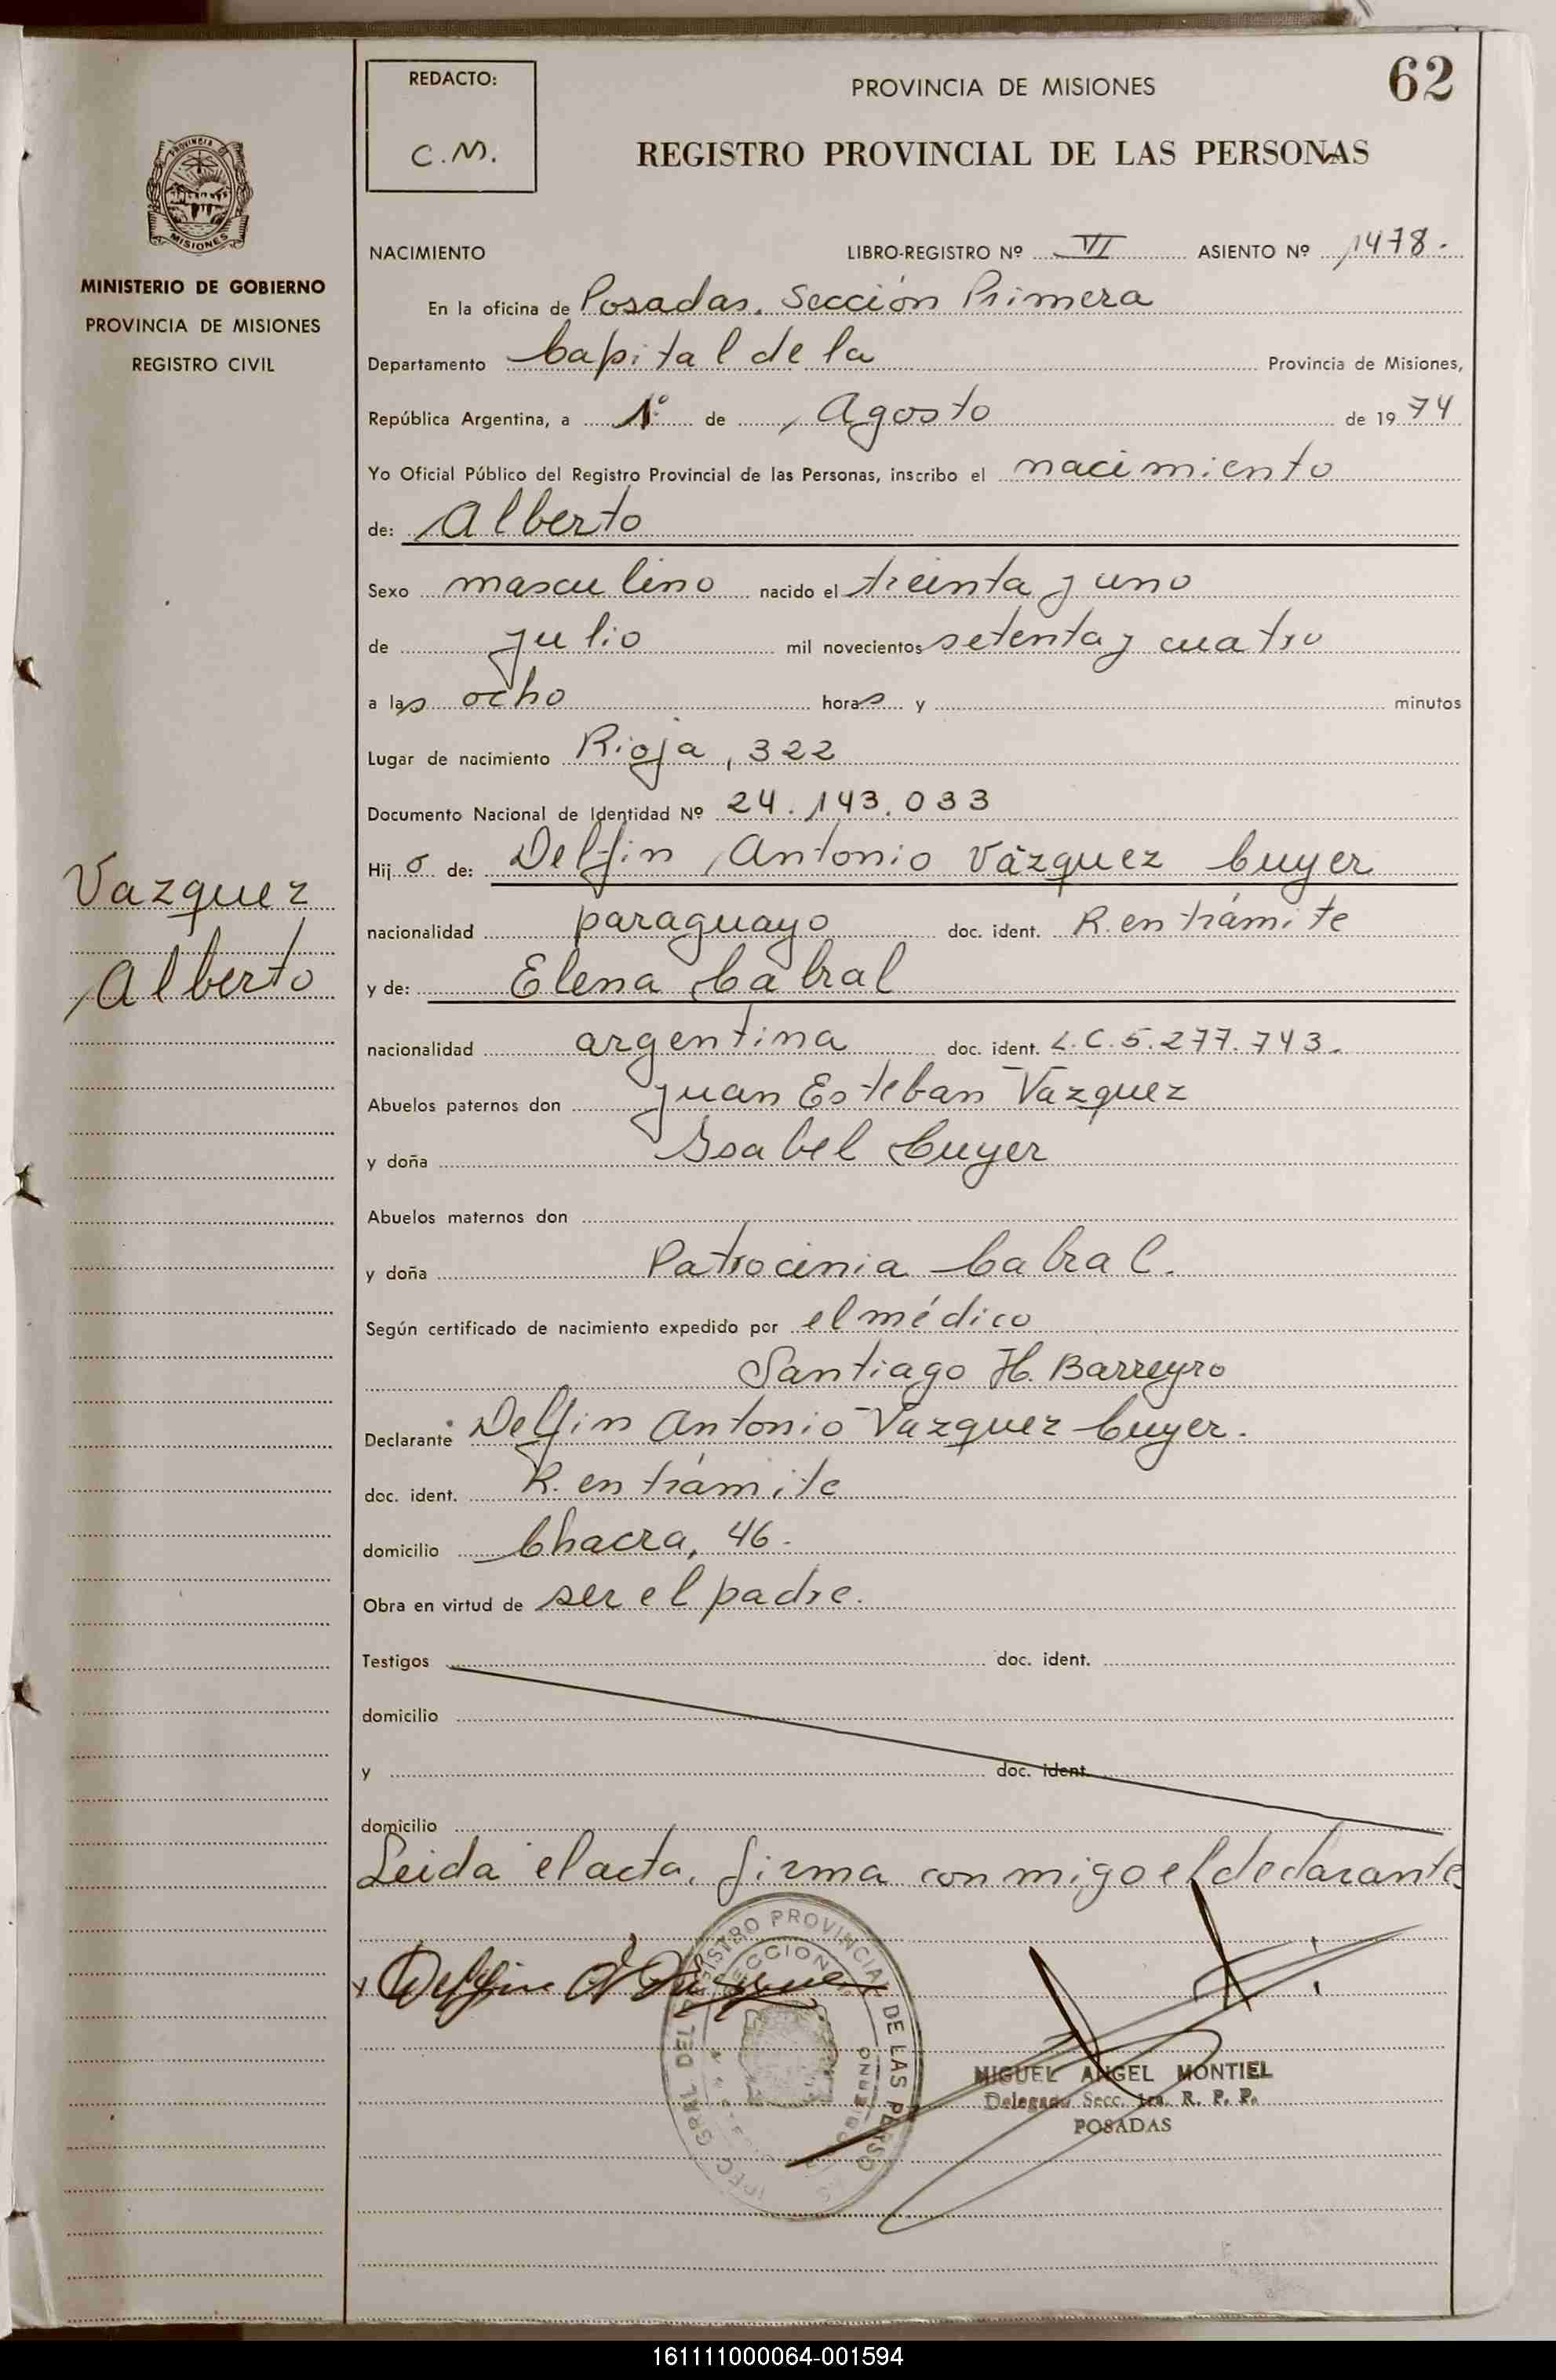 62
REDACTO:
C.M.
PROVINCIA DE MISIONES
REGISTRO PROVINCIAL DE LAS PERSONAS
PROVINCIA DE
MISIONES
MINISTERIO DE GOBIERNO
PROVINCIA DE MISIONES
REGISTRO CIVIL
Vazquez
Alberto
NACIMIENTO LIBRO-REGISTRO Nº VI ASIENTO Nº 1478.
En la oficina de Posadas. Sección Primera
Departamento Capital de la Provincia de Misiones,
República Argentina, a 1º de Agosto de 1974
Yo Oficial Público del Registro Provincial de las Personas, inscribo el nacimiento
de: Alberto
Sexo masculino nacido el treinta y uno
de julio mil novecientos setenta y cuatro
a las ocho horas y minutos
Lugar de nacimiento Rioja, 322
Documento Nacional de Identidad Nº 24.143.033
Hijo de: Delfin Antonio Vázquez Cuyer
nacionalidad paraguayo doc. ident. R. en trámite
y de: Elena Cabral
nacionalidad argentina doc. ident. L.C. 5.277.743.
Abuelos paternos don Juan Esteban Vazquez
y doña Isabel Cuyer
Abuelos maternos don
y doña Patrocinia Cabral.
Según certificado de nacimiento expedido por el médico
Santiago H. Barreyro
Declarante Delfin Antonio Vazquez Cuyer.
doc. ident. R. en trámite
domicilio Chacra, 46.
Obra en virtud de ser el padre.
Testigos doc. ident.
domicilio
y doc. ident.
domicilio
Leida el acta, firma conmigo el declarante.
Delfin A Vazquez
GRAL DEL REGISTRO PROVINCIAL DE LAS PERSO
SECCION
MIGUEL ANGEL MONTIEL
Delegado Secc. 1ra. R. P. P.
POSADAS
161111000064-001594